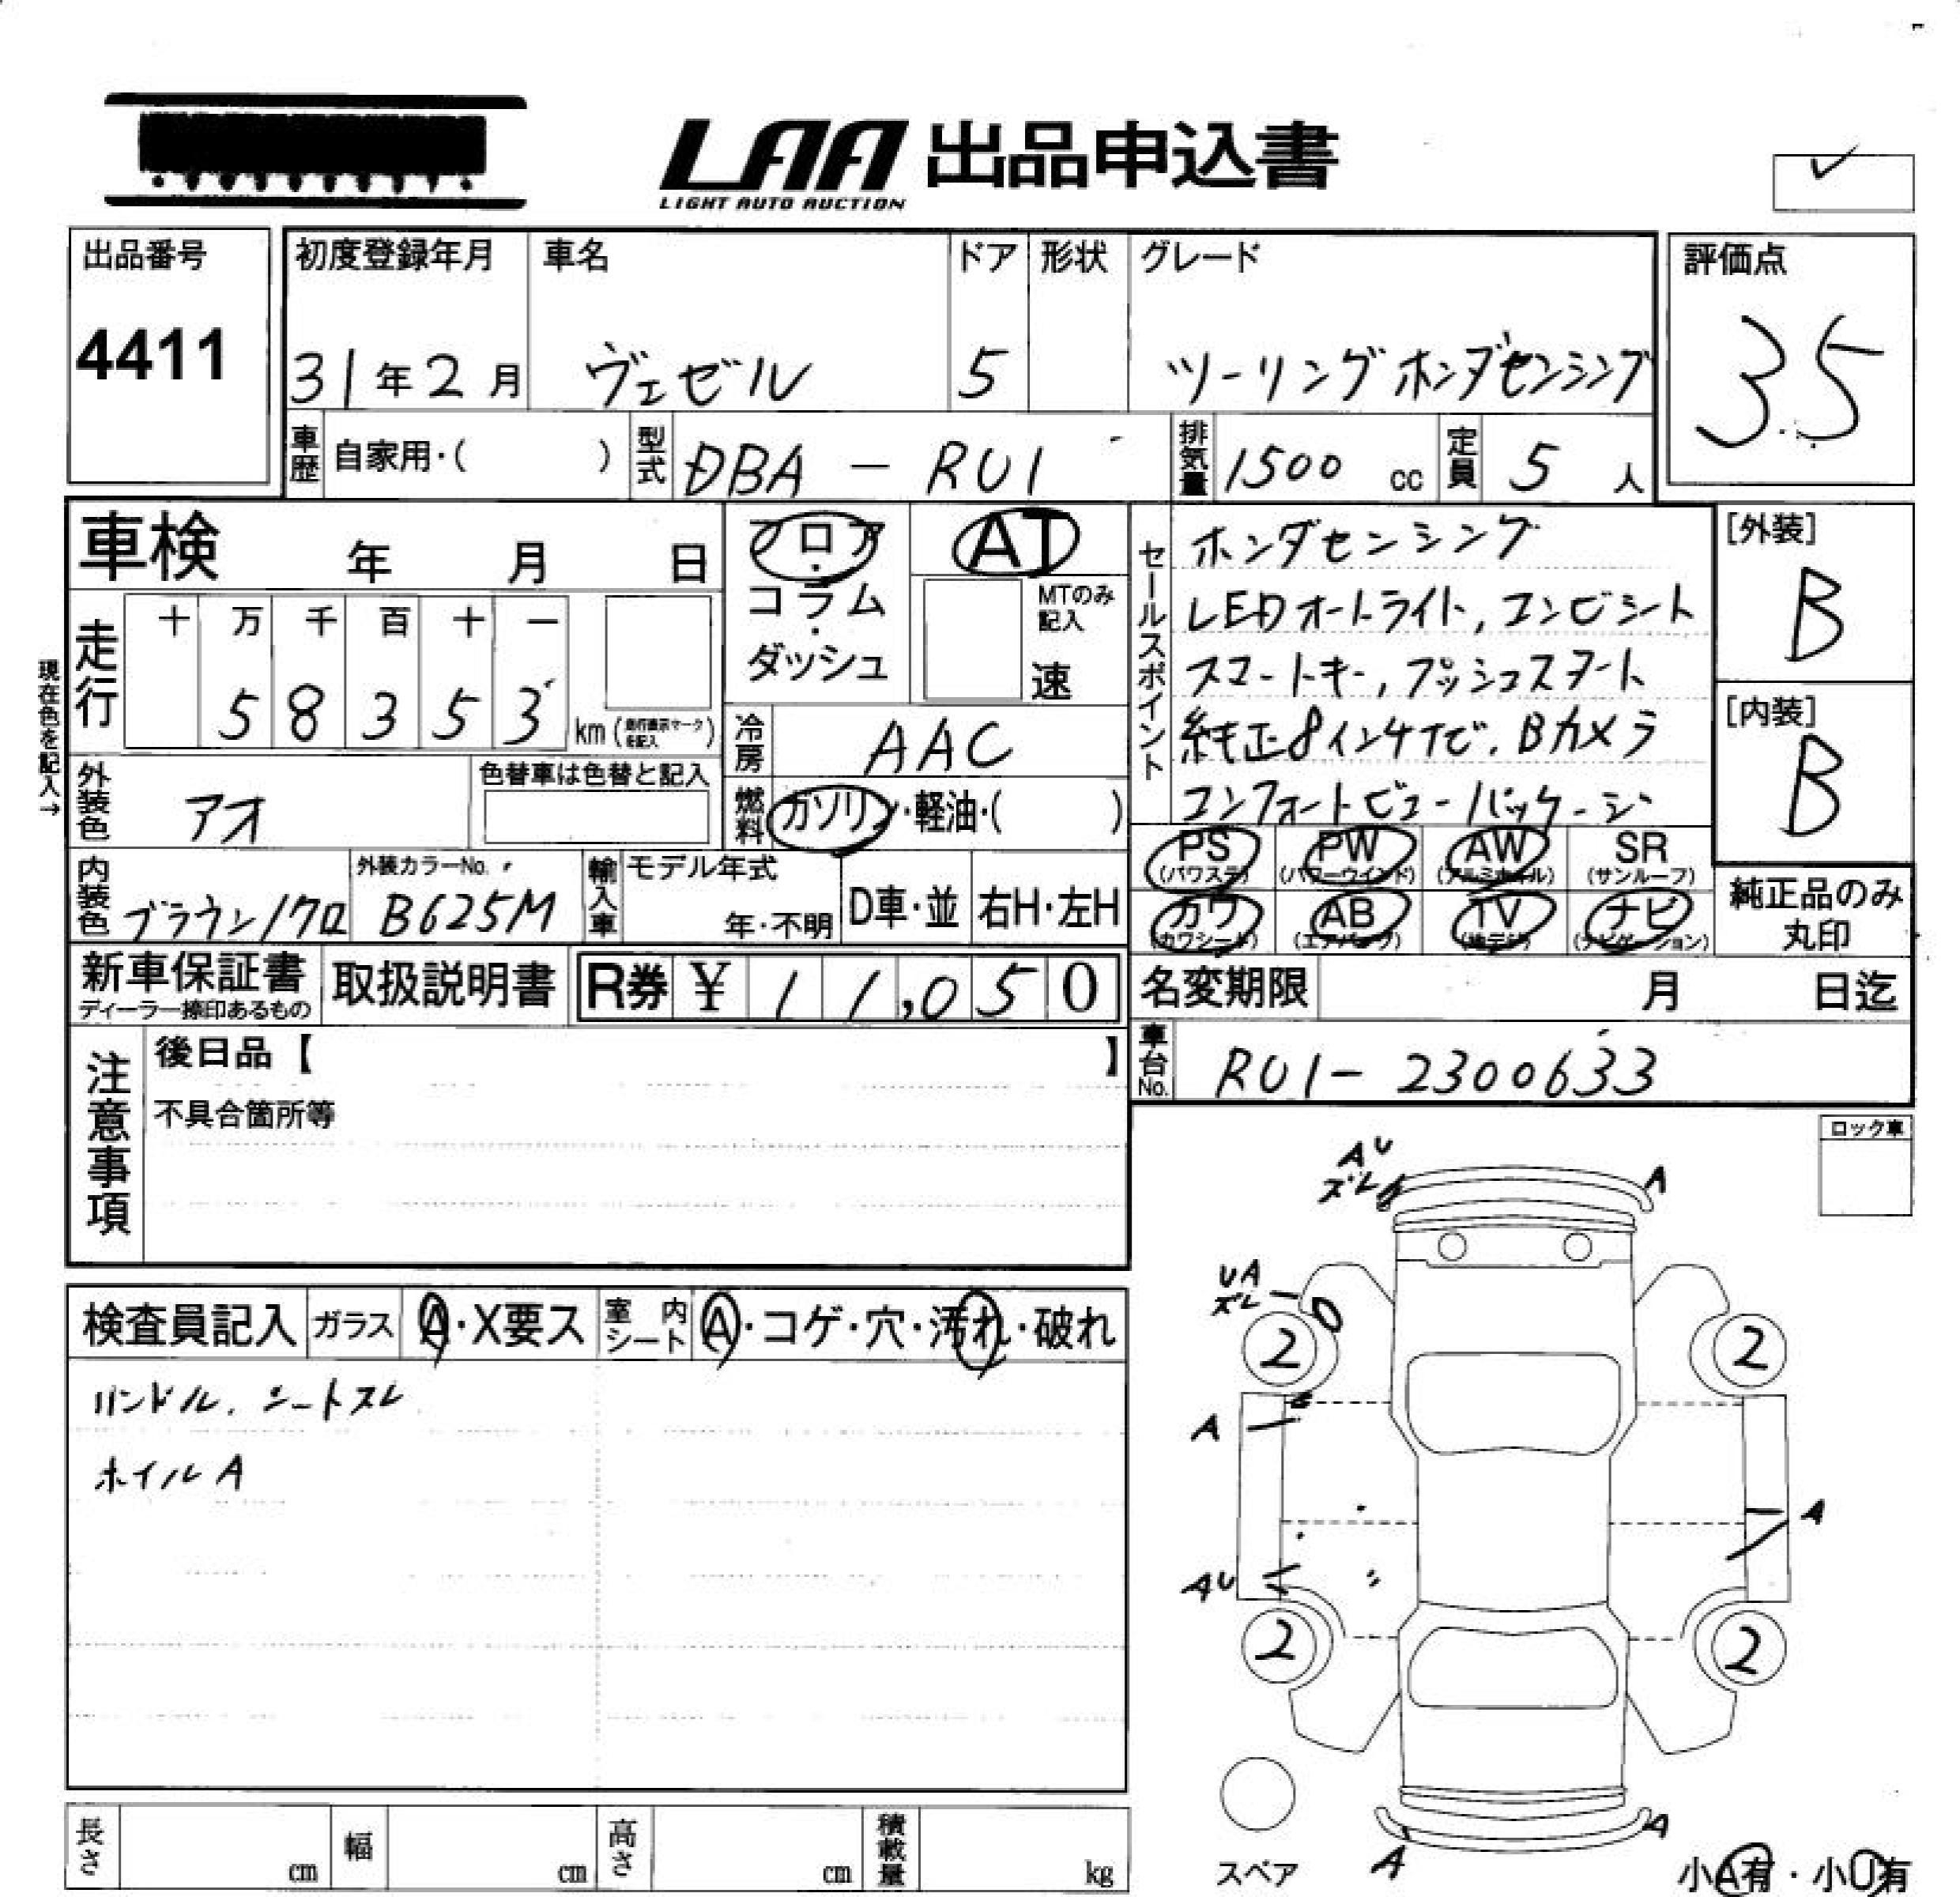 LAA 出品申込書
LIGHT AUTO AUCTION
出品番号
4411
初度登録年月
31年2月
車名
ヴェゼル
ドア
5
形状
グレード
ツーリングホンダセンシング
評価点
3.5
車歴 自家用・( )
型式 DBA - RU1
排気量 1500 cc
定員 5 人
車検 年 月 日
フロア・コラム・ダッシュ
AT
MTのみ記入
速
セールスポイント
ホンダセンシング
LEDオートライト, コンビシート
スマートキー, プッシュスタート
純正8インチナビ, Bカメラ
コンフォートビューパッケージ
[外装]
B
[内装]
B
現在色を記入→
走行
十 万 千 百 十 一
5 8 3 5 3
km (走行表示マークを記入)
冷房 AAC
外装色 アオ
色替車は色替と記入
燃料 ガソリン・軽油・( )
PS (パワステ)
PW (パワーウインド)
AW (アルミホイル)
SR (サンルーフ)
カワ (カワシート)
AB (エアバック)
TV (地デジ)
ナビ (ナビゲーション)
純正品のみ丸印
内装色 ブラウン/クロ
外装カラーNo.
B625M
輸入車
モデル年式
年・不明
D車・並
右H・左H
新車保証書
ディーラー捺印あるもの
取扱説明書
R券 ¥ 11,050
名変期限 月 日迄
車台No. RU1-2300633
注意事項
後日品【 】
不具合箇所等
ロック車
検査員記入
ガラス A・X要ス
室内シート A・コゲ・穴・汚れ・破れ
ハンドル, シートスレ
ホイルA
AU
ズレ
A
UA
ズレ
2
2
A
A
AU
2
2
A
A
スペア
小A有・小U有
長さ cm
幅 cm
高さ cm
積載量 kg